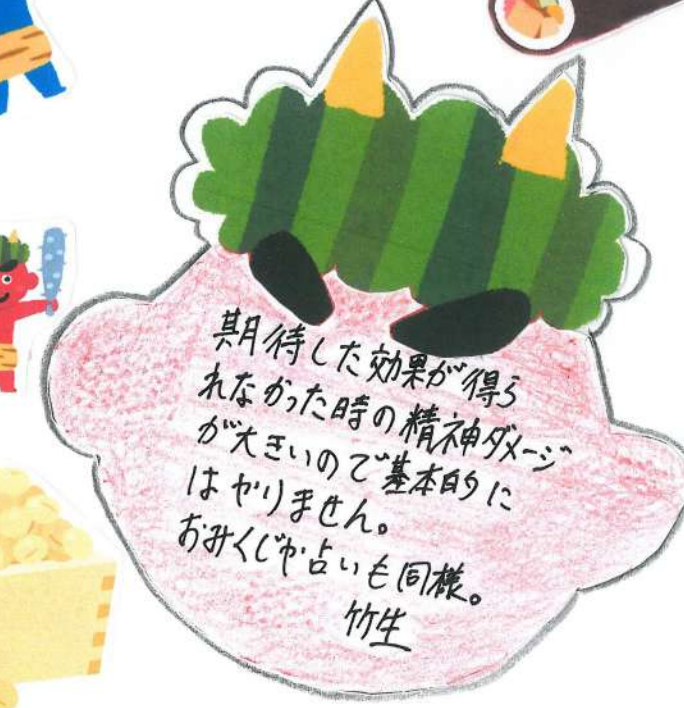 期待した効果が得ら
れなかった時の精神ダメージ
が大きいので基本的に
はやりません。
おみくじや占いも同様。
竹生